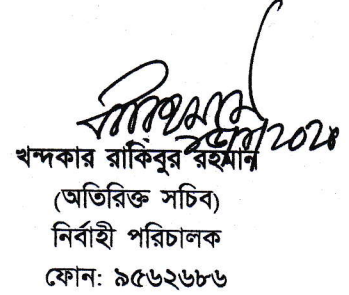 খন্দকার রাকিবুর রহমান
(অতিরিক্ত সচিব)
নির্বাহী পরিচালক
ফোন: ৯৫৬২৬৮৬